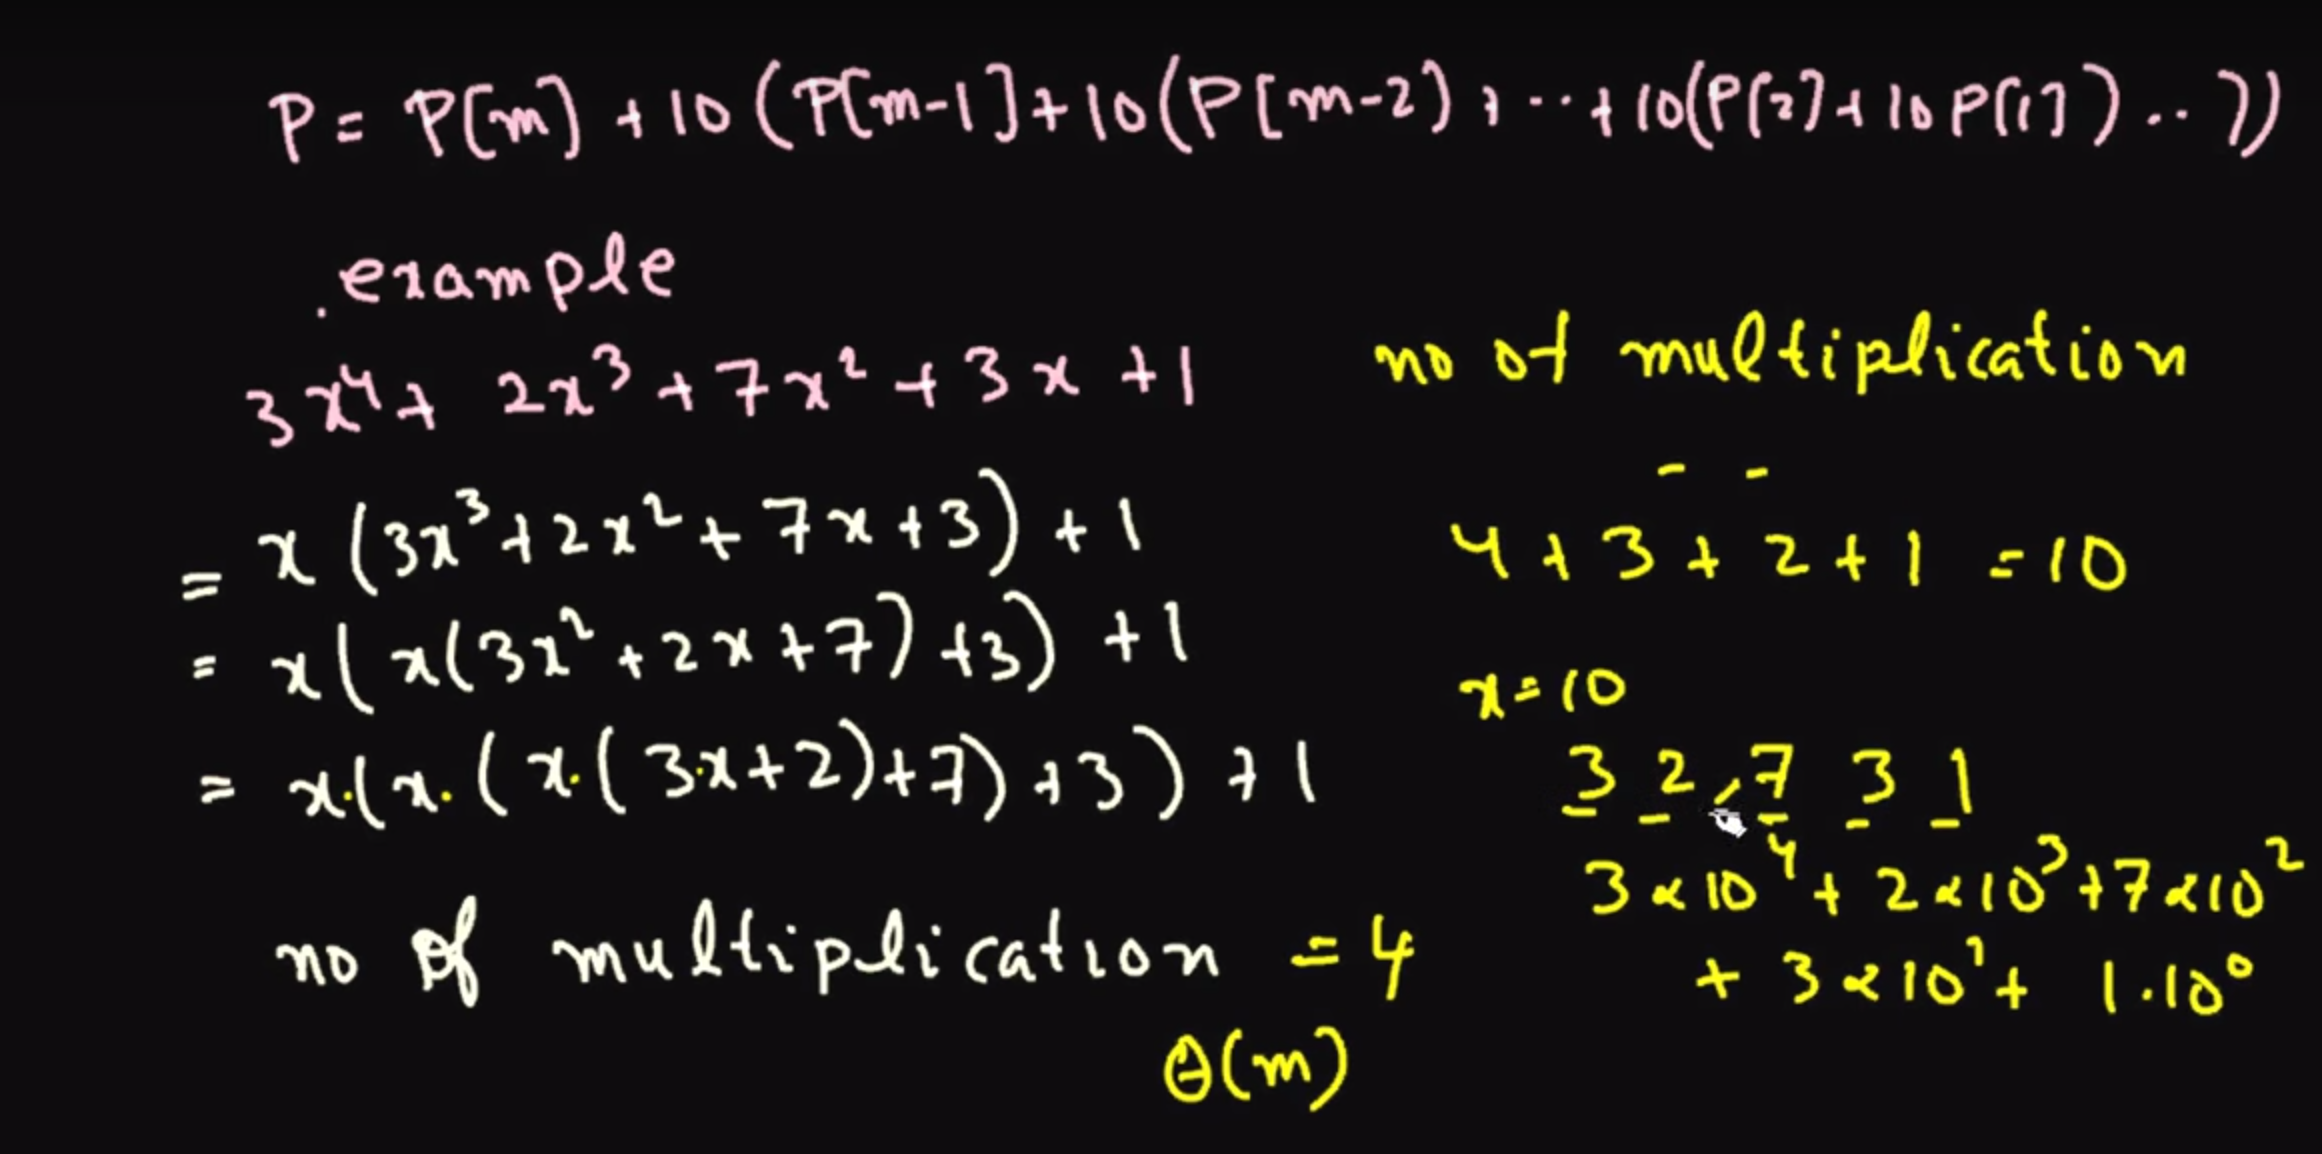 P = P[m] + 10 (P[m-1] + 10 (P[m-2] + ... + 10(P[2] + 10 P[1]) .. ))
. example
3x⁴ + 2x³ + 7x² + 3x + 1
= x (3x³ + 2x² + 7x + 3) + 1
= x( x(3x² + 2x + 7) + 3) + 1
= x.(x.( x.( 3.x + 2) + 7) + 3) + 1
no of multiplication = 4
θ(m)
no of multiplication
4 + 3 + 2 + 1 = 10
x = 10
3 2 7 3 1
3 × 10⁴ + 2 × 10³ + 7 × 10²
+ 3 × 10¹ + 1 . 10⁰